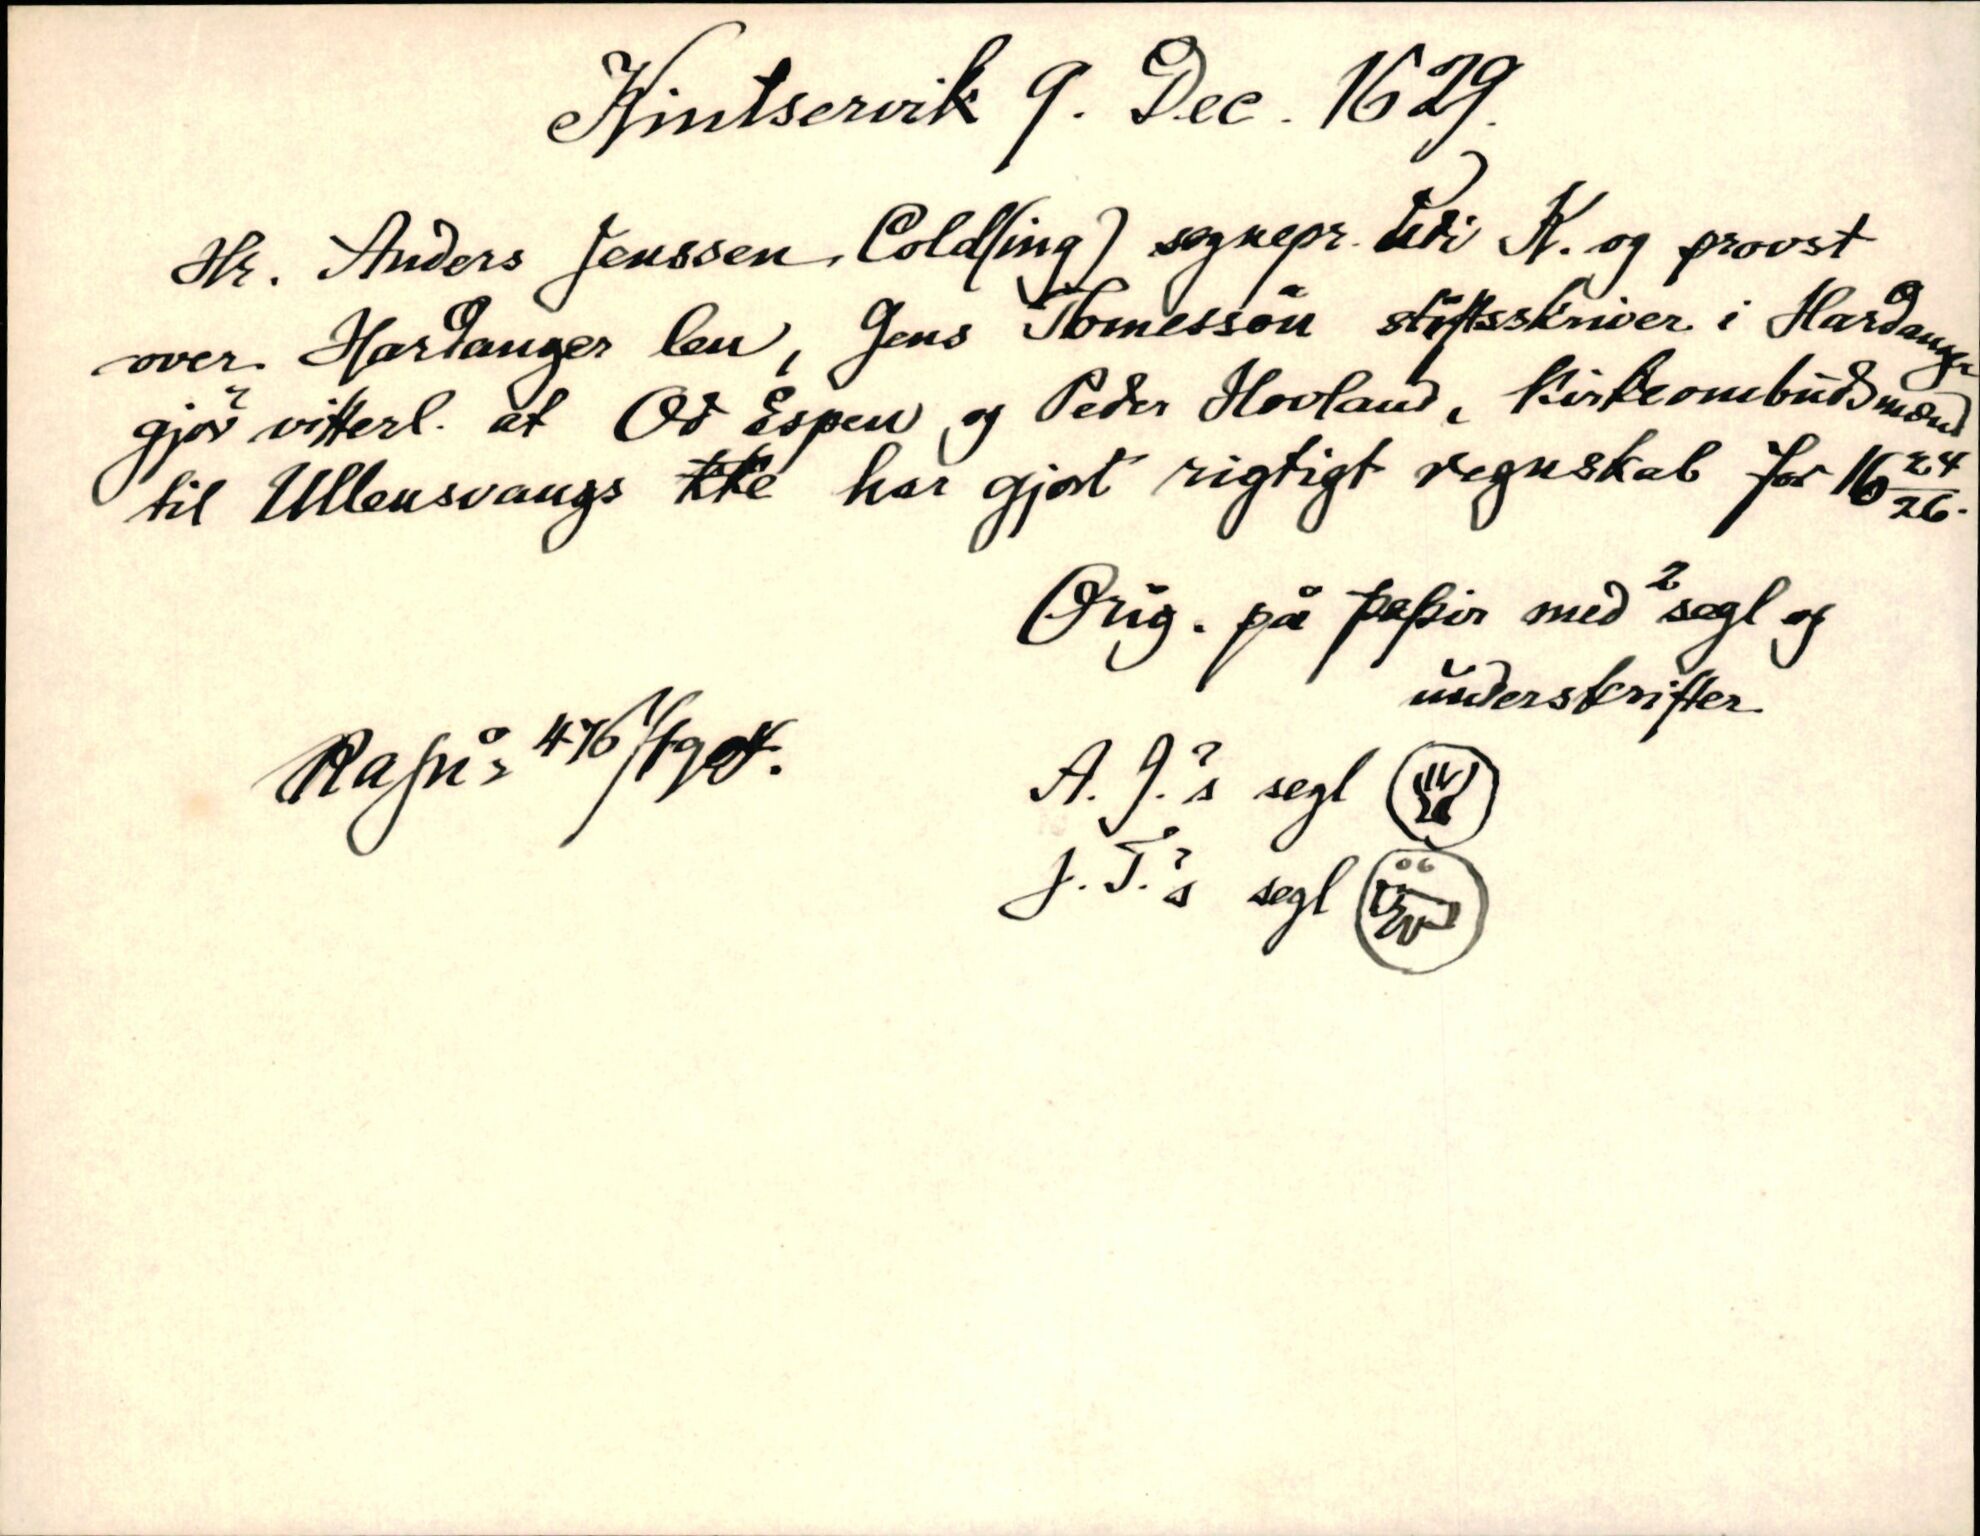 Kintservik 9. Dec. 1629.
Hr. Anders Jenssen Cold(ing) sognepr. udi K. og provst
over Hardanger len, Jens Tomessøn stiftsskriver i Hardanger
gjör vitterl. at Od Espen og Peder Hovland, kirkeombudsmænd
til Ullensvangs kke har gjort rigtigt regnskab for 16 24/26.
Orig. på papir med 2 segl og
underskrifter
A. J.'s segl
J. T.'s segl